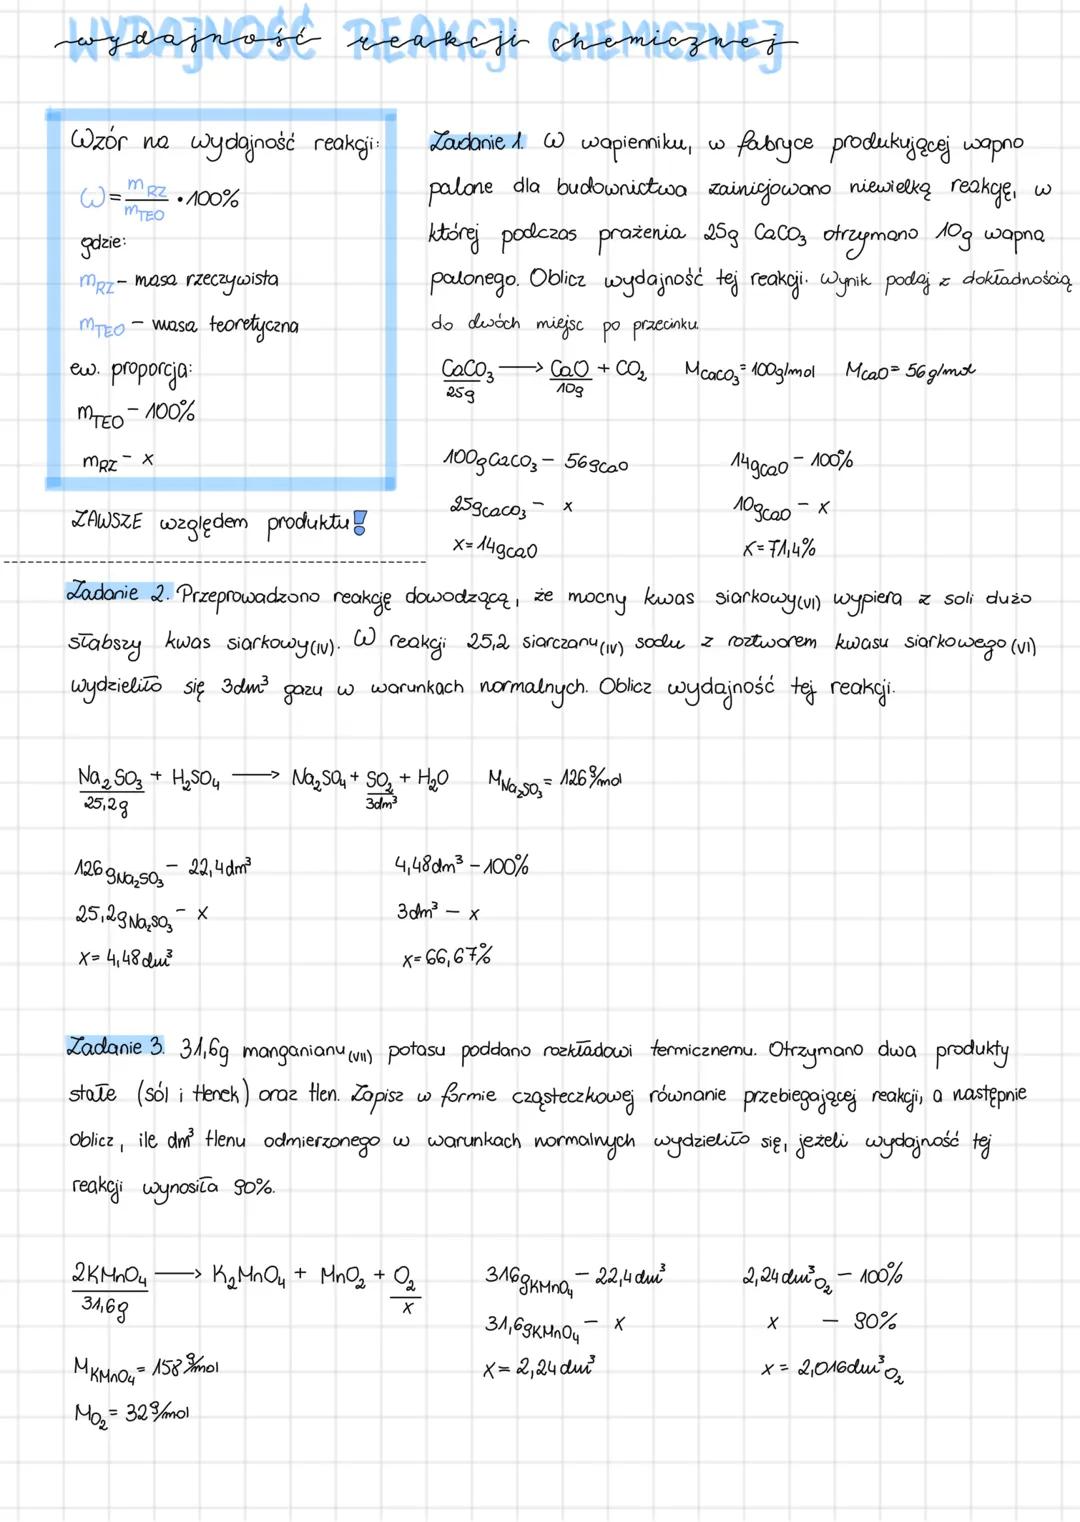 wydajność reakcji chemicznej
WYDAJNOŚĆ REAKCJI CHEMICZNEJ
Wzór na wydajność reakcji:
ω = m_RZ / m_TEO · 100%
gdzie:
m_RZ - masa rzeczywista
m_TEO - masa teoretyczna
ew. proporcja:
m_TEO - 100%
m_RZ - x
ZAWSZE względem produktu!
Zadanie 1. W wapienniku, w fabryce produkującej wapno
palone dla budownictwa zainicjowano niewielką reakcję, w
której podczas prażenia 25g CaCO₃ otrzymano 10g wapna
palonego. Oblicz wydajność tej reakcji. Wynik podaj z dokładnością
do dwóch miejsc po przecinku.
CaCO₃ → CaO + CO₂ M_CaCO₃ = 100g/mol M_CaO = 56g/mol
25g 10g
100g CaCO₃ - 56g CaO 14g CaO - 100%
25g CaCO₃ - x 10g CaO - x
x = 14g CaO x = 71,4%
Zadanie 2. Przeprowadzono reakcję dowodzącą, że mocny kwas siarkowy(VI) wypiera z soli dużo
słabszy kwas siarkowy(IV). W reakcji 25,2 siarczanu(IV) sodu z roztworem kwasu siarkowego(VI)
wydzieliło się 3dm³ gazu w warunkach normalnych. Oblicz wydajność tej reakcji.
Na₂SO₃ + H₂SO₄ → Na₂SO₄ + SO₂ + H₂O M_Na₂SO₃ = 126g/mol
25,2g 3dm³
126g Na₂SO₃ - 22,4dm³ 4,48dm³ - 100%
25,2g Na₂SO₃ - x 3dm³ - x
x = 4,48dm³ x = 66,67%
Zadanie 3. 31,6g manganianu(VII) potasu poddano rozkładowi termicznemu. Otrzymano dwa produkty
stałe (sól i tlenek) oraz tlen. Zapisz w formie cząsteczkowej równanie przebiegającej reakcji, a następnie
oblicz, ile dm³ tlenu odmierzonego w warunkach normalnych wydzieliło się, jeżeli wydajność tej
reakcji wynosiła 90%.
2KMnO₄ → K₂MnO₄ + MnO₂ + O₂ 316g KMnO₄ - 22,4dm³ 2,24dm³ O₂ - 100%
31,6g x 31,6g KMnO₄ - x x - 90%
M_KMnO₄ = 158g/mol x = 2,24dm³ x = 2,016dm³ O₂
M_O₂ = 32g/mol